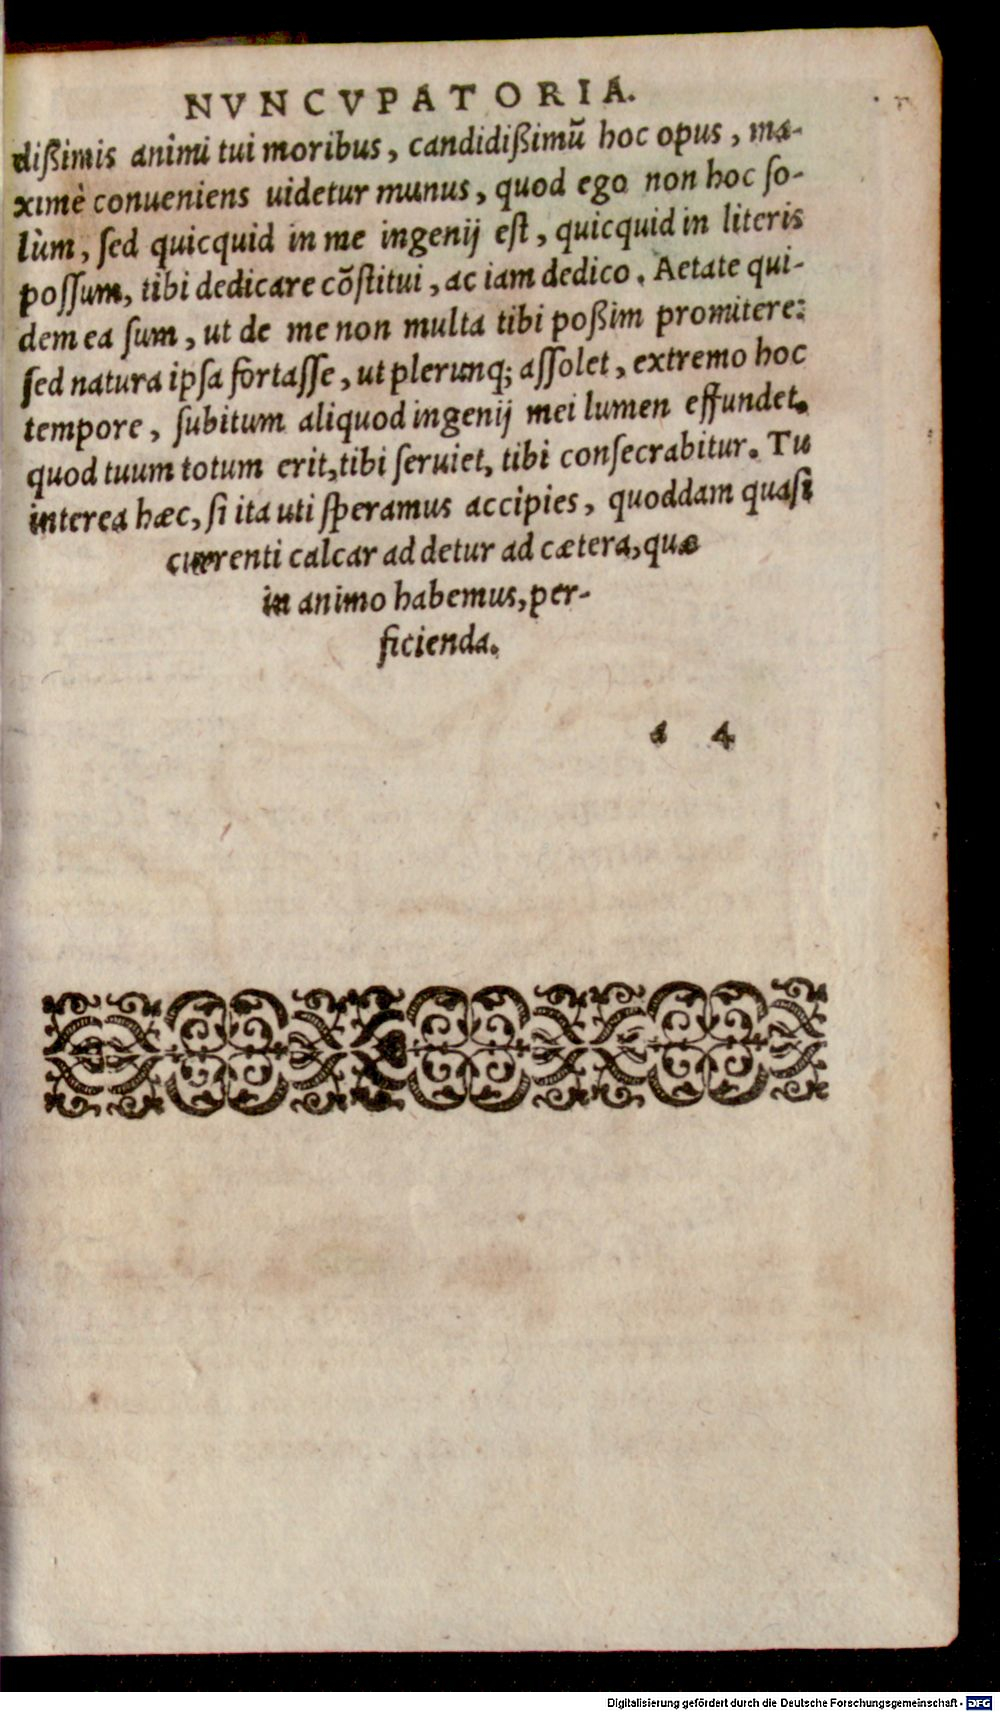 NVNCVPATORIA.
dißimis animi tui moribus, candidißimū hoc opus, ma-
ximè conueniens uidetur munus, quod ego non hoc ſo-
lùm, ſed quicquid in me ingenij eſt, quicquid in literis
poſſum, tibi dedicare cōſtitui, ac iam dedico. Aetate qui-
dem ea ſum, ut de me non multa tibi poßim promitere:
ſed natura ipſa fortaſſe, ut plerunq; aſſolet, extremo hoc
tempore, ſubitum aliquod ingenij mei lumen effundet.
quod tuum totum erit, tibi ſeruiet, tibi conſecrabitur. Tu
interea hæc, ſi ita uti ſperamus accipies, quoddam quaſi
currenti calcar ad detur ad cætera, quæ
in animo habemus, per-
ficienda.
a 4
Digitalisierung gefördert durch die Deutsche Forschungsgemeinschaft - DFG